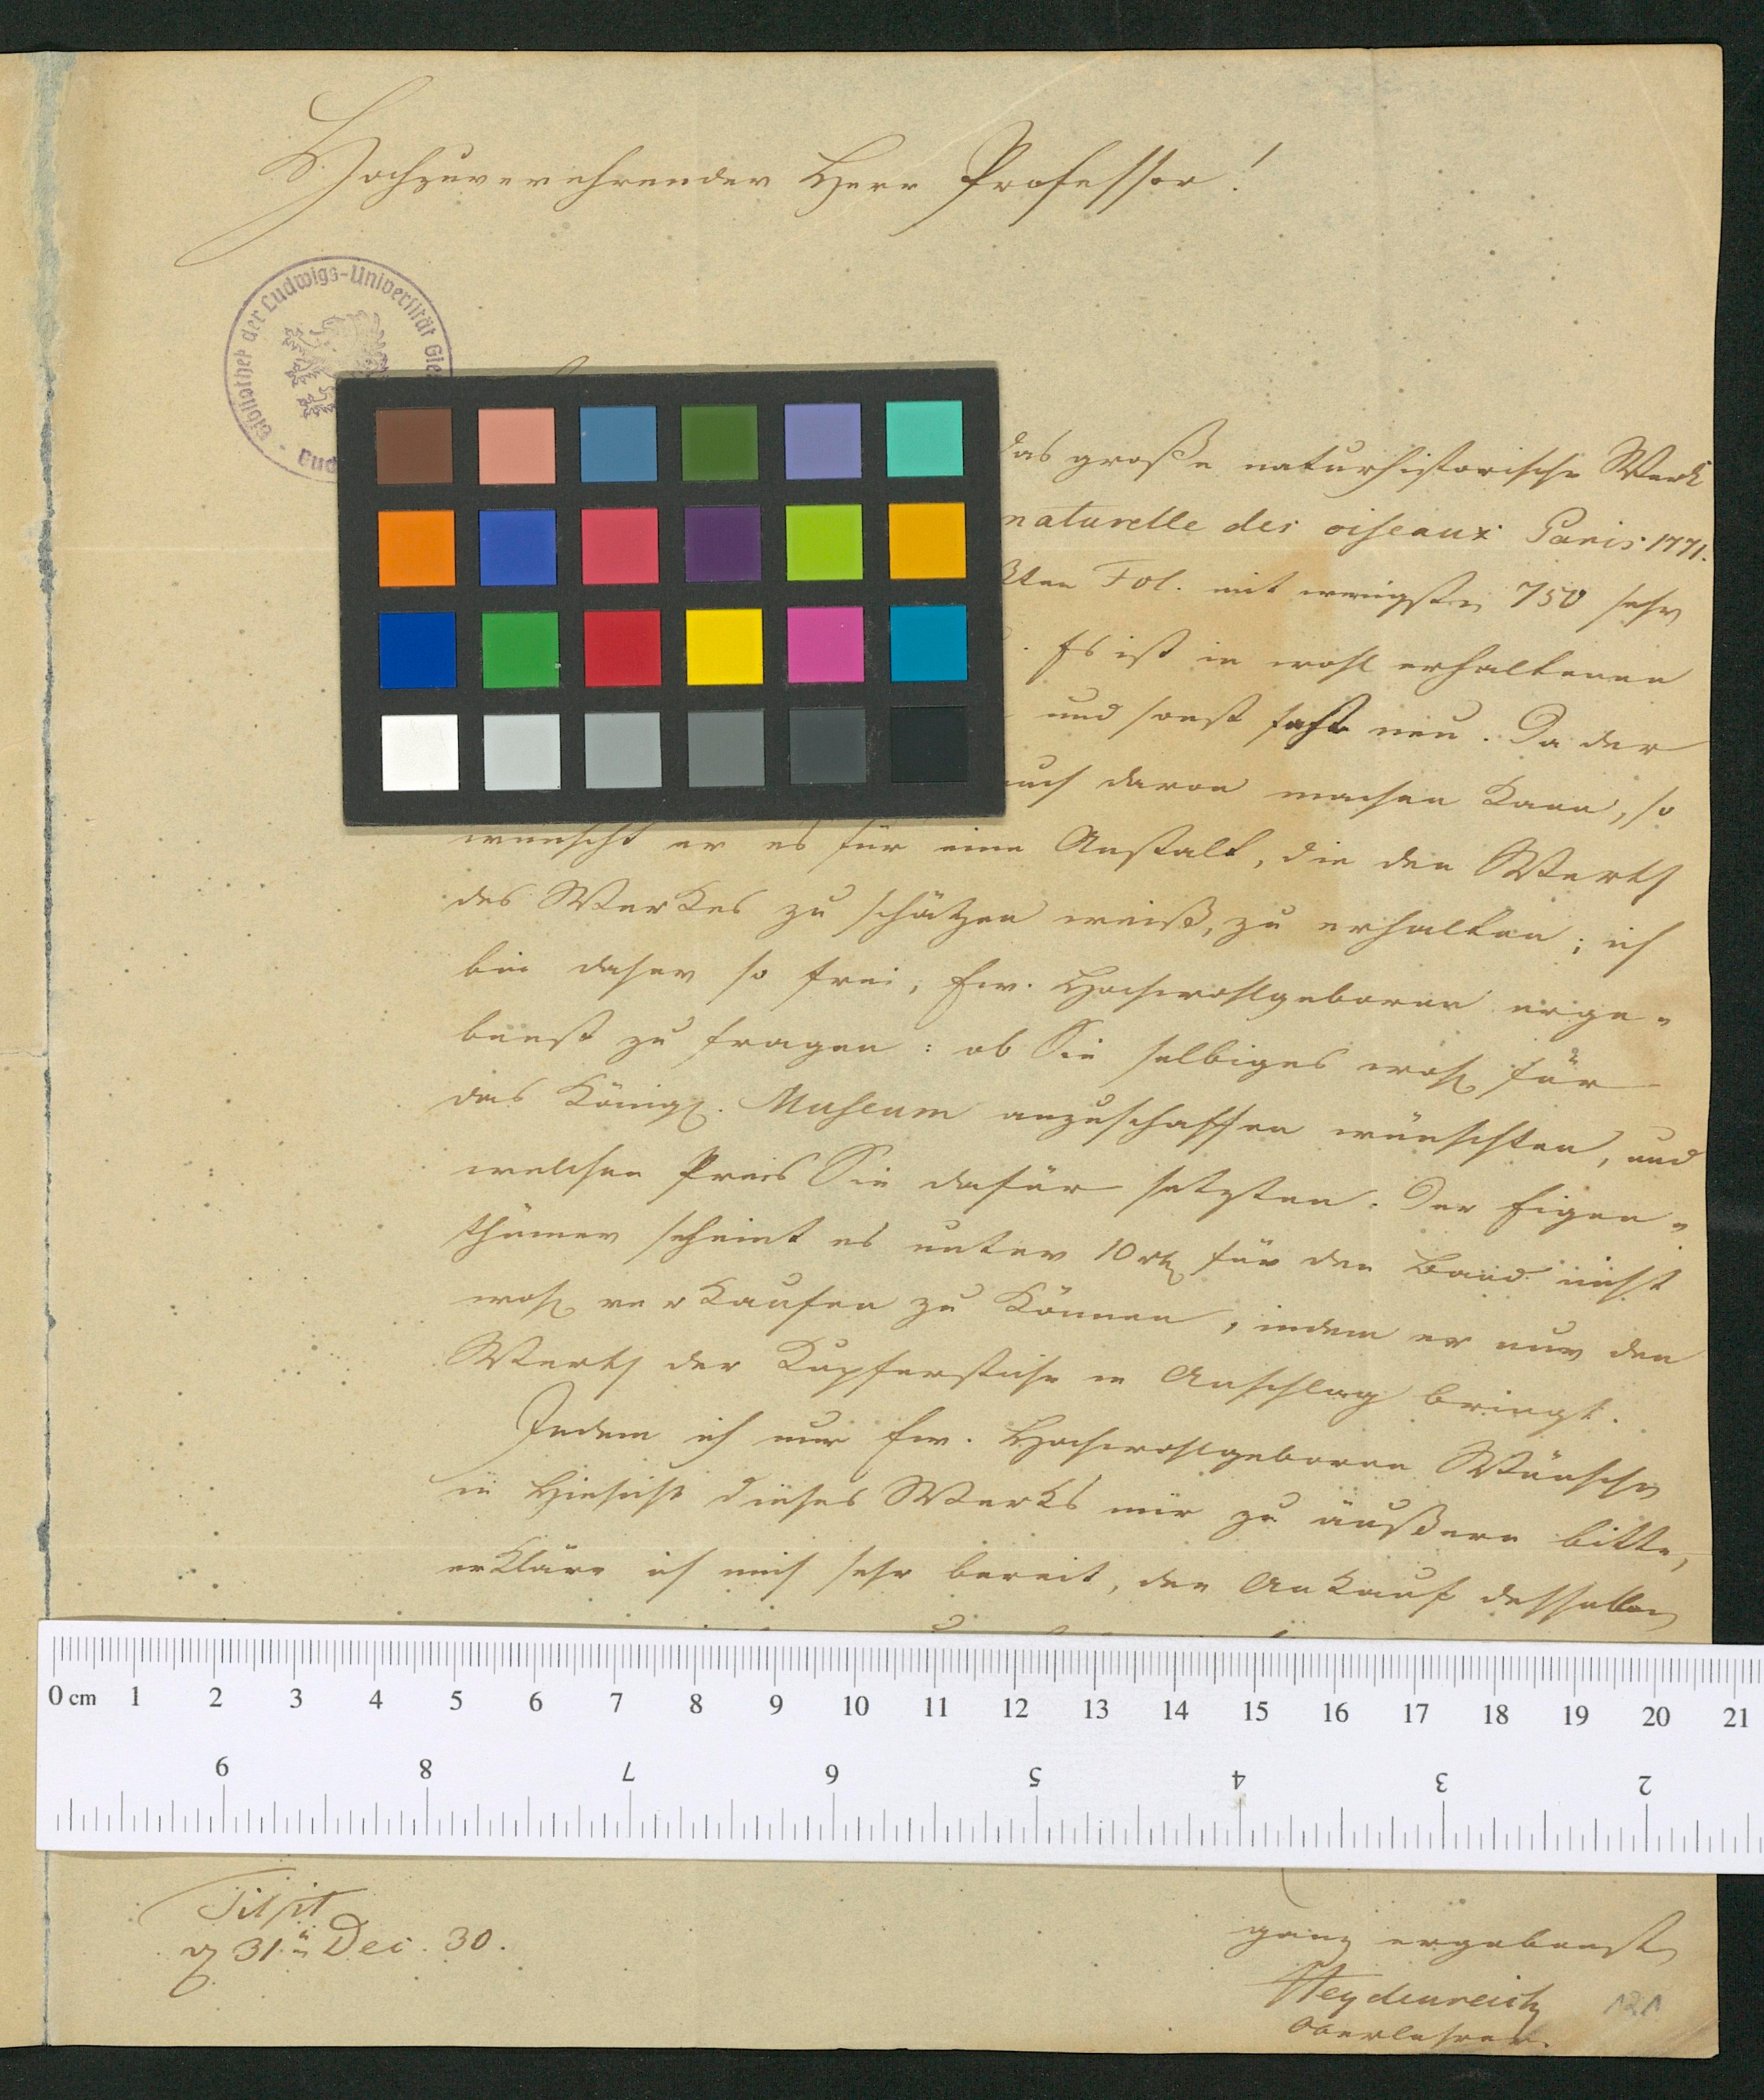 Hochzuverehrender Herr Professor!
Bibliothek der Ludwigs-Universität Gie
das große naturhistorische Werk
naturelle des oiseaux Paris 1771.
ßten Fol. mit wenigstens 750 sehr
Es ist in wohl erhaltenen
und sonst fast neu. Da der
auch davon machen kann, so
wünscht er es für eine Anstalt, die den Werth
des Werkes zu schätzen weiß, zu erhalten; ich
bin daher so frei, Ew. Hochwohlgeboren erge-
benst zu fragen: ob Sie selbiges wohl für
das Königl. Museum anzuschaffen wünschten, und
welchen Preis Sie dafür setzten. Der Eigen-
thümer scheint es unter 10 rth für den Band nicht
wohl verkaufen zu können, indem er nur den
Werth der Kupferstiche in Anschlag bringt.
Indem ich nur Ew. Hochwohlgeboren Wünsche
in Hinsicht dieses Werks mir zu äußern bitte,
erkläre ich mich sehr bereit, den Ankauf desselben
0 cm 1 2 3 4 5 6 7 8 9 10 11 12 13 14 15 16 17 18 19 20 21
9 8 7 6 5 4 3 2
Tilsit
31. Dec. 30.
ganz ergebenster
Heydenreich
Oberlehrer.
121